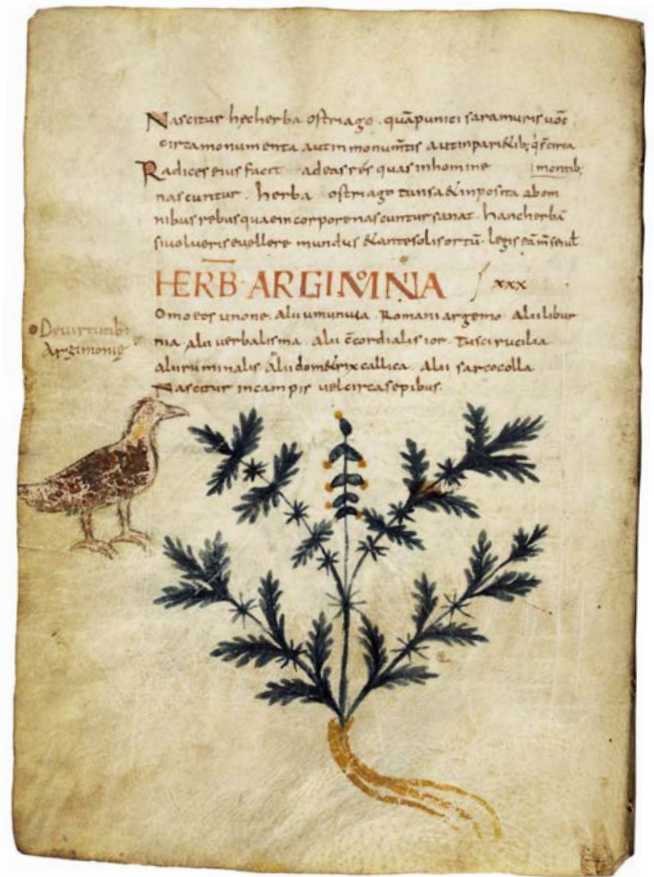 Nascitur hecherba ostriago. quāpunici saramuris uoc̄
circamonumenta autinmonum̄tis autinparietib; q̄ſcirca
montib;
Radices eius facit adeasrēs quas inhomine
nascuntur. herba ostriago tunsa & inposita abom
nibus rebus quaein corpore nascuntur sanat. hanc herbā
siuolueris euellere mundus & antesolis ortū legis
HERB̄ ARGIMONIA xxx
Omoeos unone. Alii Romani argemo Alii libur
nia alii uerbalisma. Alii Tusci rucilia
alii sarcocolla
Nascitur incampis uelcircasepibus.
Deuirtutib;
Argimonię